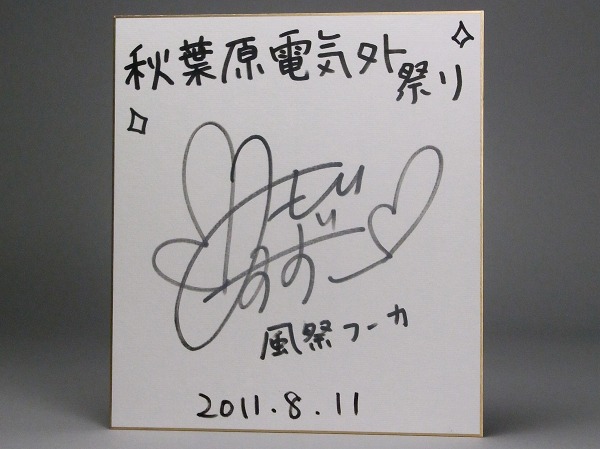 秋葉原電気外祭り
風祭フーカ
2011.8.11